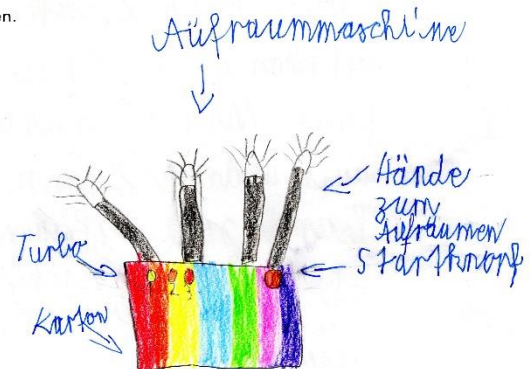 en.
Aüfraummaschine
Hände
zum
Aufräumen
Startknopf
Turbo
Karton